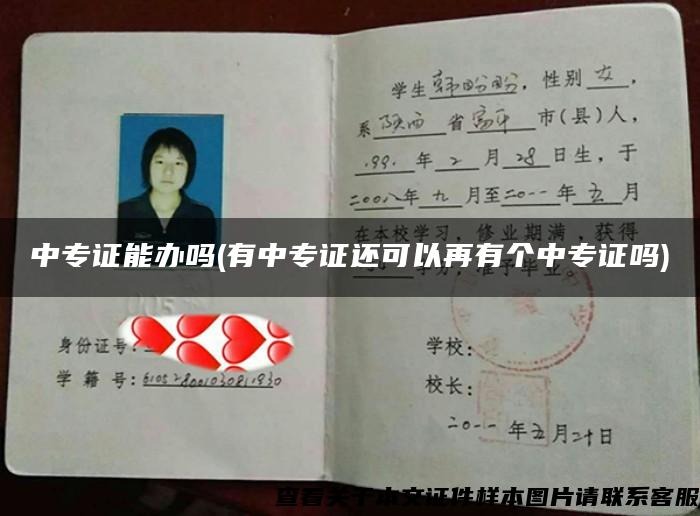 学生韩盼盼，性别女，
系陕西省富平市(县)人，
.991.年2月28日生，于
二00八年九月至二0一一年五月
在本校学习，修业期满，获得
学分，准予毕业。
中专证能办吗(有中专证还可以再有个中专证吗)
身份证号:
学籍号:
学校:
校长:
二0一一年五月二十日
查看关于本文证件样本图片请联系客服